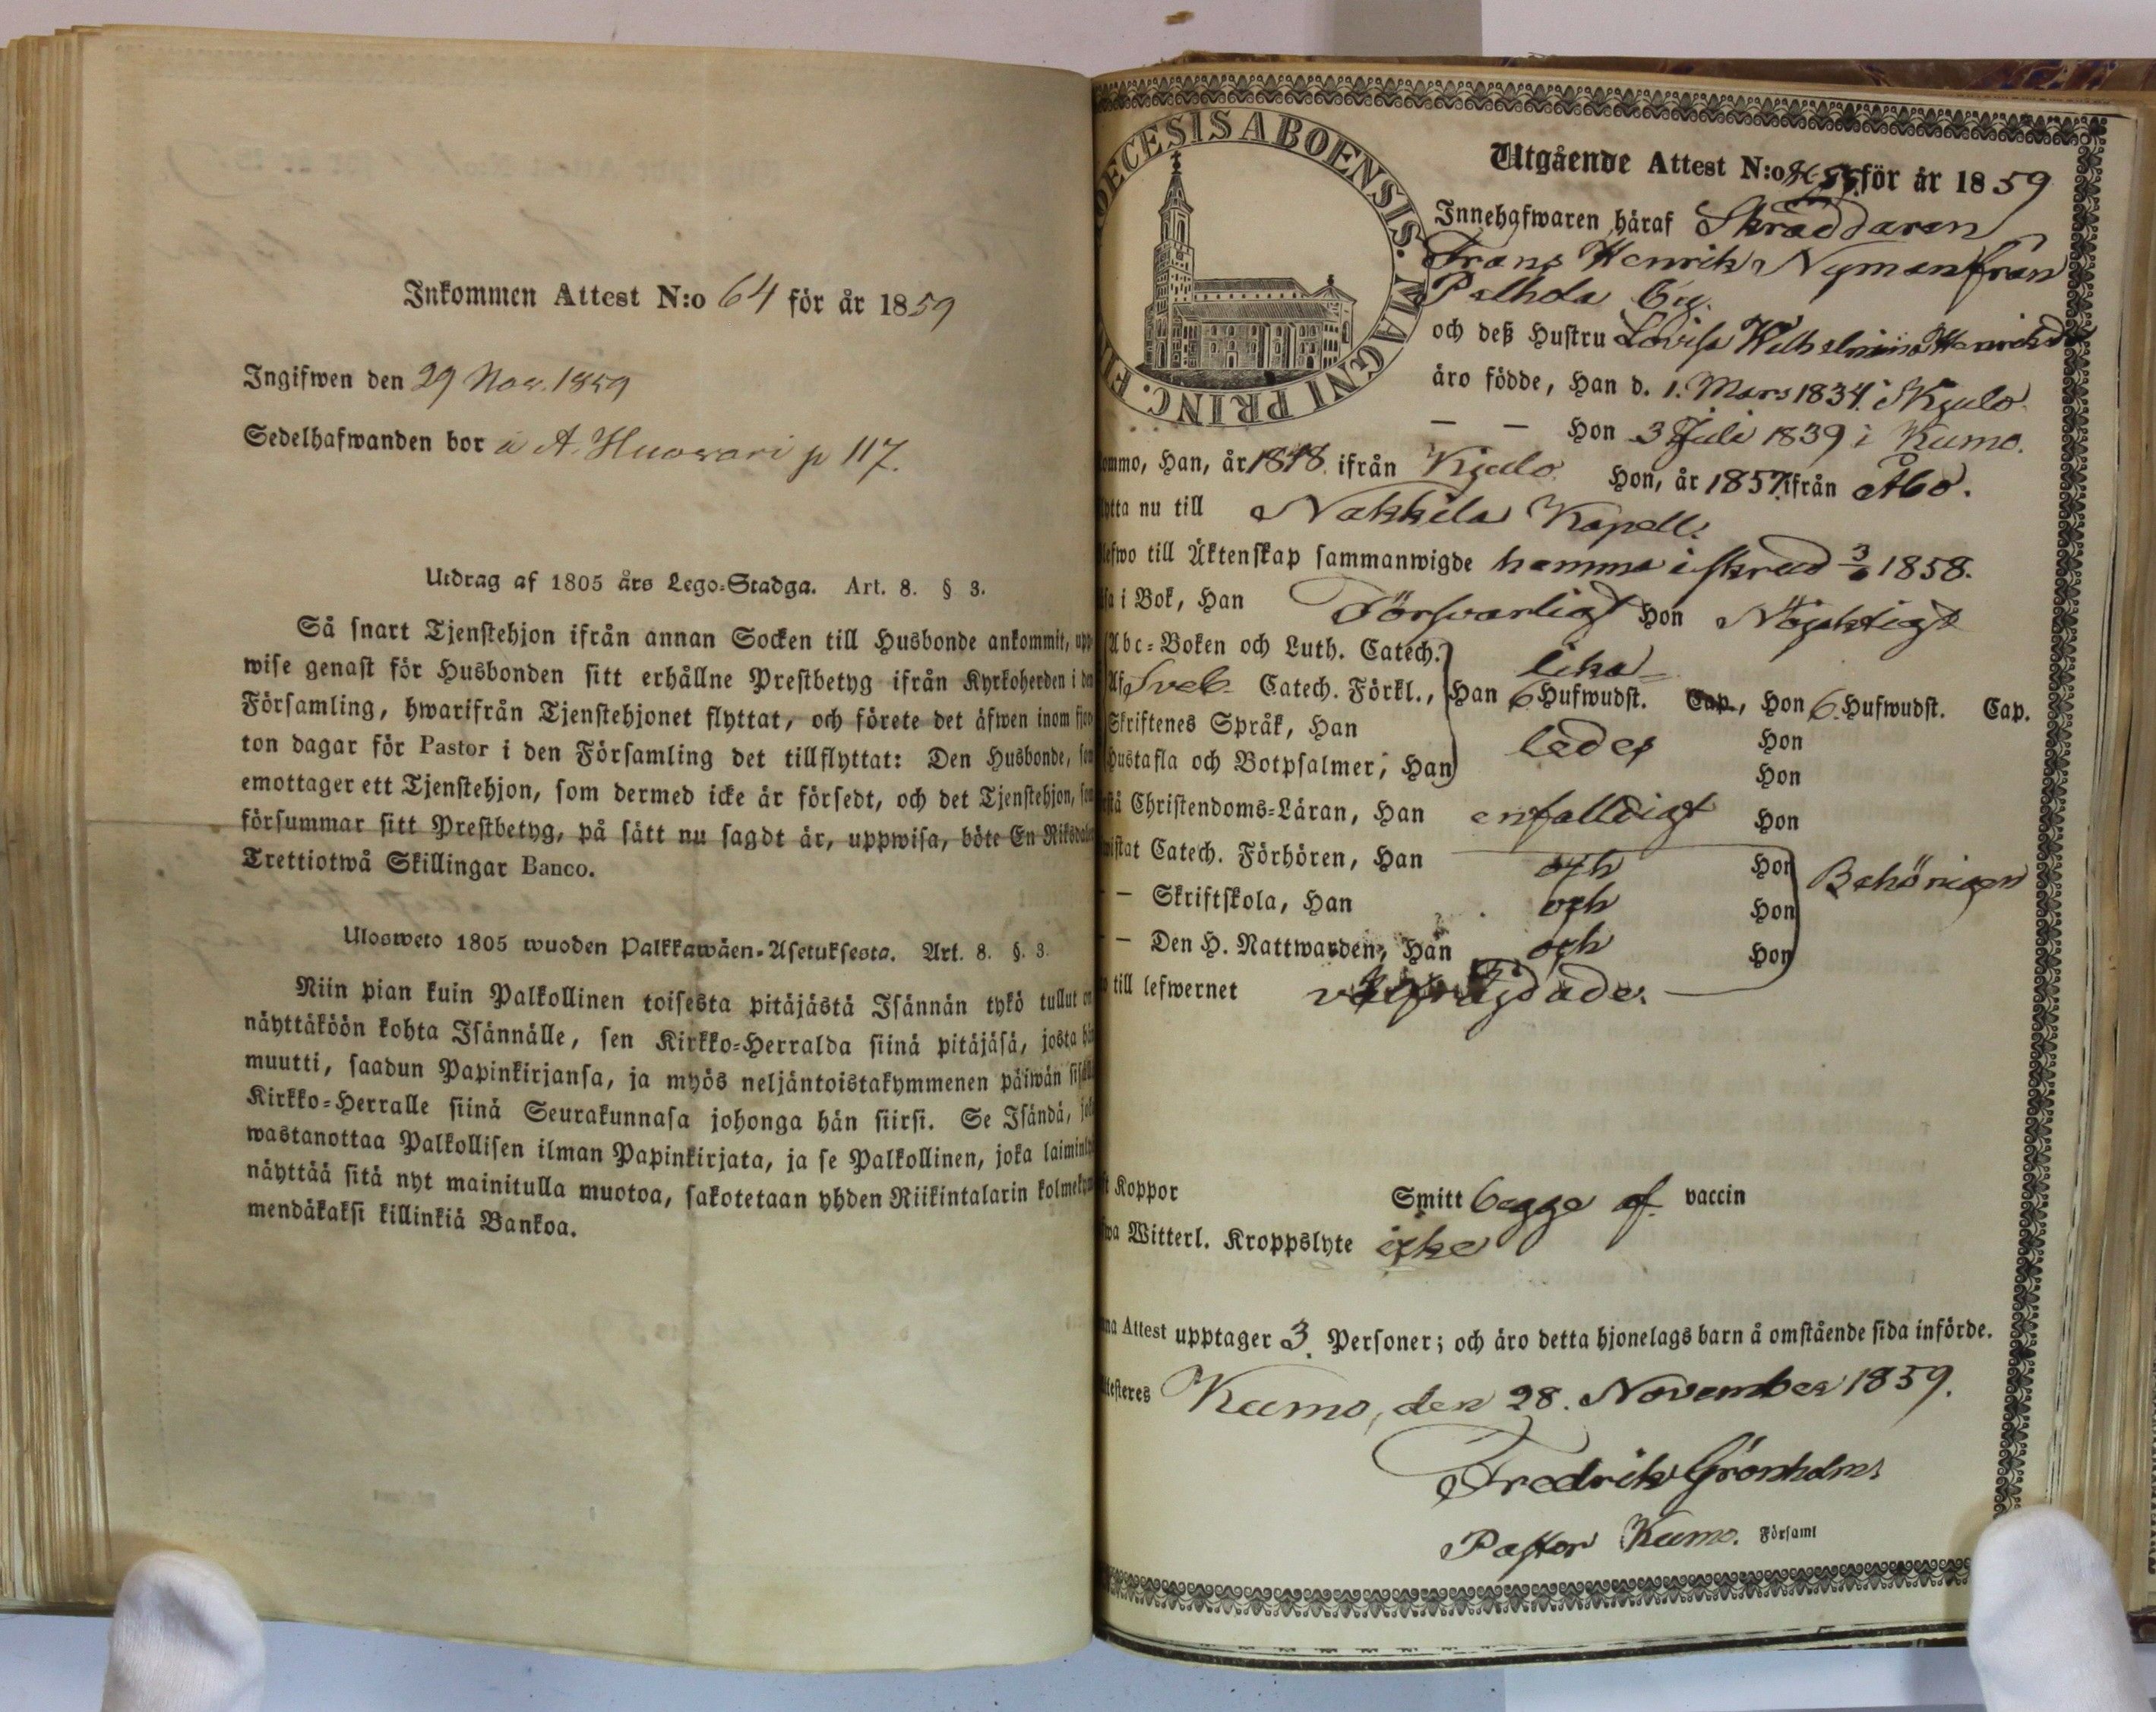 Inkommen Attest N:o 64 för år 1859
Ingifwen den 29 Nov. 1859
Sedelhafwanden bor å A. Huovari p 117.
Utdrag af 1805 års Lego-Stadga. Art. 8. § 3.
Så snart Tjenstehjon ifrån annan Socken till Husbonde ankommit, upp
wise genast för Husbonden sitt erhållne Prestbetyg ifrån Kyrkoherden i den
Församling, hwarifrån Tjenstehjonet flyttat, och förete det äfwen inom fjor
ton dagar för Pastor i den Församling det tillflyttat: Den Husbonde, som
emottager ett Tjenstehjon, som dermed icke är försedt, och det Tjenstehjon, som
försummar sitt Prestbetyg, på sätt nu sagdt är, uppwisa, böte En Riksdaler
Trettiotwå Skillingar Banco.
Ulosweto 1805 wuoden Palkkawäen-Asetuksesta. Art. 8. §. 3.
Niin pian kuin Palkollinen toisesta pitäjästä Isännän tykö tullut on
näyttäköön kohta Isännälle, sen Kirkko-Herralda siinä pitäjäsä, josta hän
muutti, saadun Papinkirjansa, ja myös neljäntoistakymmenen päiwän sisällä
Kirkko-Herralle siinä Seurakunnasa johonga hän siirsi. Se Isändä, joka
wastanottaa Palkollisen ilman Papinkirjata, ja se Palkollinen, joka laiminlyö
näyttää sitä nyt mainitulla muotoa, sakotetaan yhden Riikintalarin kolmekym
mendäkaksi killinkiä Bankoa.
DIOECESIS ABOENSIS. MAGNI PRINC. FI
Utgående Attest N:o för år 1859
Innehafwaren häraf Skräddaren
Frans Henrik Nyman från
Pelhola by.
och deß Hustru Lovisa Wilhelmina Henriksd
äro födde, Han d. 1. Mars 1834 i Kjulo
— — Hon 3 Juli 1839 i Kumo.
kommo, Han, år 1848 ifrån Kjulo Hon, år 1857 ifrån Åbo.
flytta nu till Nakkila Kapell.
blefwo till Äktenskap sammanwigde hemma i 1858.
läsa i Bok, Han Försvarligt Hon Nöjaktigt
Abc-Boken och Luth. Catech. lika
Af Sveb. Catech. Förkl., Han 6 Hufwudst. Cap., Hon 6. Hufwudst. Cap.
Skriftenes Språk, Han ledes Hon
Hustafla och Botpsalmer, Han Hon
förstå Christendoms-Läran, Han enfalldigt Hon
bewistat Catech. Förhören, Han och Hon Behörigen
— — Skriftskola, Han och Hon
— — Den H. Nattwarden, Han och Hon
till lefwernet välfrägdade.
haft Koppor Smitt begge af vaccin
hafwa Witterl. Kroppslyte icke
denna Attest upptager 3. Personer; och äro detta hjonelags barn å omstående sida införde.
attesteres Kumo, den 28. November 1859.
Fredrik Grönholm
Pastor Kumo. Församl